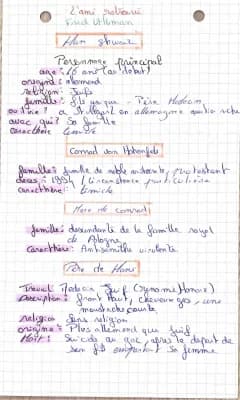 L'ami retrouvé
Fred Uhlman
Hans Schwarz
Personnage principal
âge : 16 ans (au début)
origine : allemand
religion : Juifs
famille : fils unique - Père Medecin
où vivre ? a Stuttgart en allemagne
avec qui ? Sa famille
caractère
Conrad von Hohenfels
famille : famille de noble protestant
caractère : timide
Mere de Conrad
famille : descendants de la famille royal
de Pologne
caractère : Antisémite violente
Père de Hans
Travail Medecin Juif
Description : front haut, cheveux gris, une
moustache courte
religion Sans religion
origine : Plus allemand que juif
Mort : Suicide au gaz, après le depart de
son fils emportant sa femme